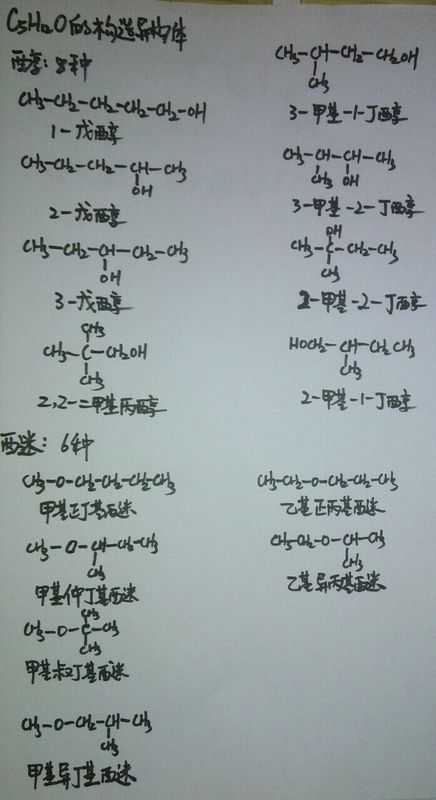 C5H12O的构造异构体
醇：8种
CH3-CH2-CH2-CH2-CH2-OH
1-戊醇
CH3-CH2-CH2-CH-CH3
OH
2-戊醇
CH3-CH2-CH-CH2-CH3
OH
3-戊醇
CH3
CH3-C-CH2OH
CH3
2,2-二甲基丙醇
CH3-CH-CH2-CH2OH
CH3
3-甲基-1-丁醇
CH3-CH-CH-CH3
CH3 OH
3-甲基-2-丁醇
OH
CH3-C-CH2-CH3
CH3
2-甲基-2-丁醇
HOCH2-CH-CH2CH3
CH3
2-甲基-1-丁醇
醚：6种
CH3-O-CH2-CH2-CH2-CH3
甲基正丁基醚
CH3-O-CH-CH2-CH3
CH3
甲基仲丁基醚
CH3
CH3-O-C-CH3
CH3
甲基叔丁基醚
CH3-O-CH2-CH-CH3
CH3
甲基异丁基醚
CH3-CH2-O-CH2-CH2-CH3
乙基正丙基醚
CH3-CH2-O-CH-CH3
CH3
乙基异丙基醚